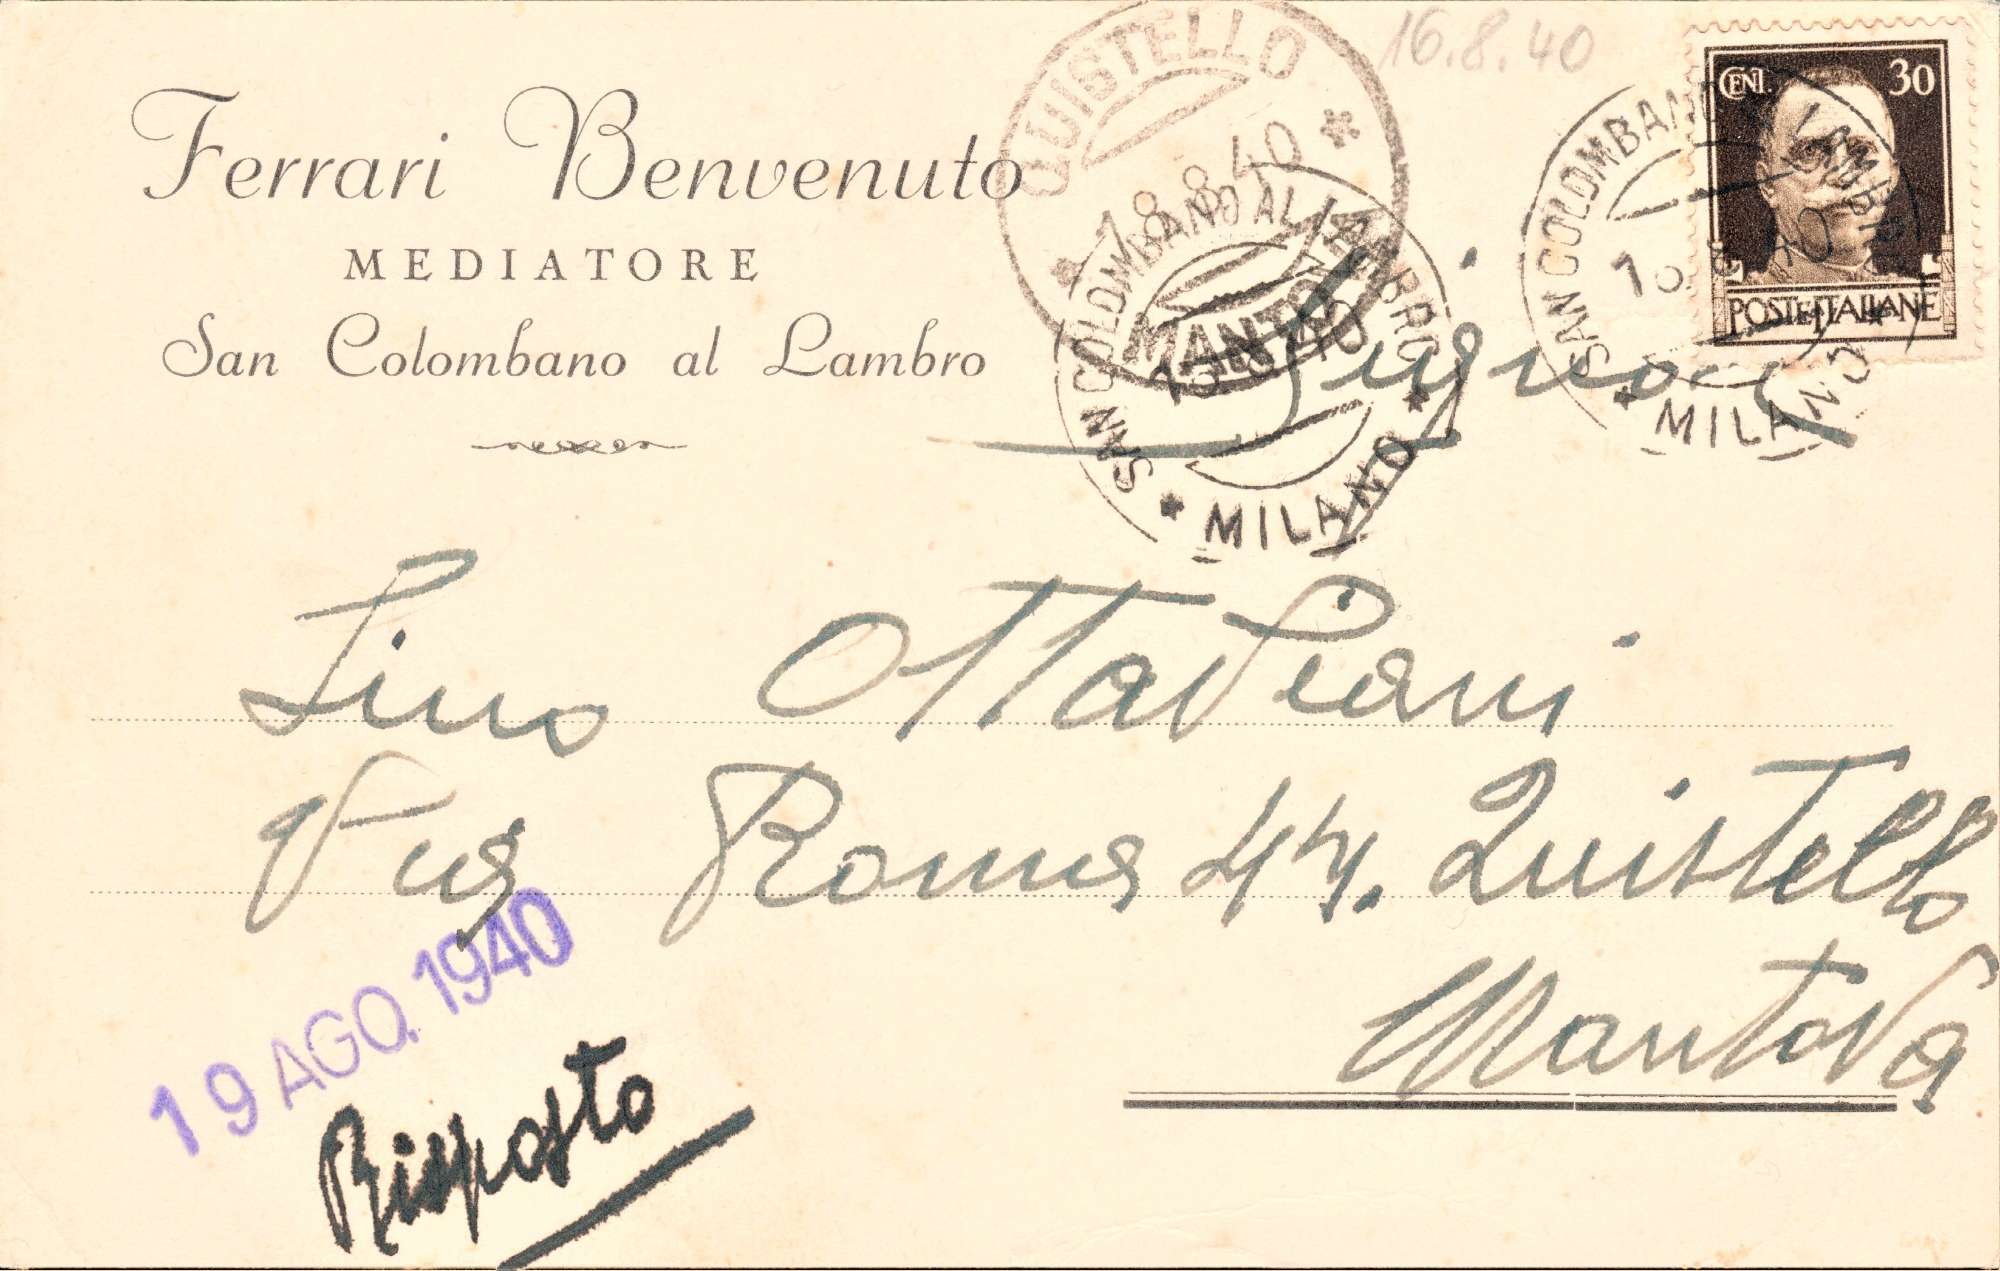 16.8.40
Ferrari Benvenuto
MEDIATORE
San Colombano al Lambro
QUISTELLO
* 18.8.40 *
MANTOVA
SAN COLOMBANO AL LAMBRO
16.8.40
* MILANO *
SAN COLOMBANO AL LAMBRO
16.8.40
* MILANO *
CENT. 30
POSTE ITALIANE
Signor
Lino Ottaviani
Via Roma 44. Quistello
Mantova
19 AGO. 1940
Risposto